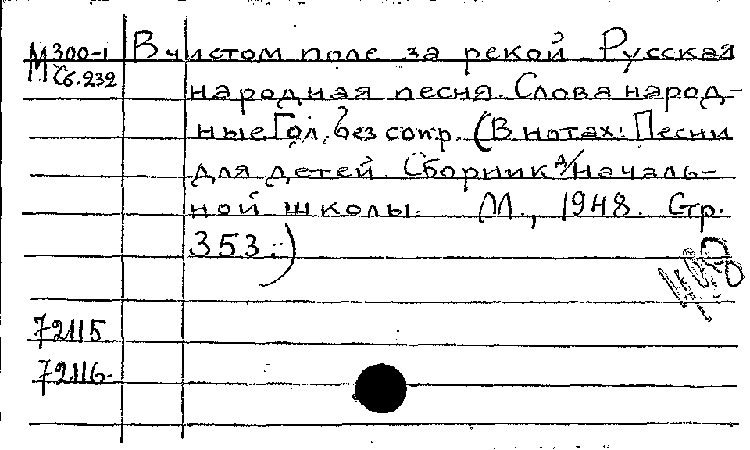 М 300-1 В чистом поле за рекой Русская
Сб.232
народная песня. Слова народ-
ные Гол. без сопр. (В нотах: Песни
для детей. Сборник д/началь-
ной школы. М., 1948. Стр.
353.)
72115
72116.